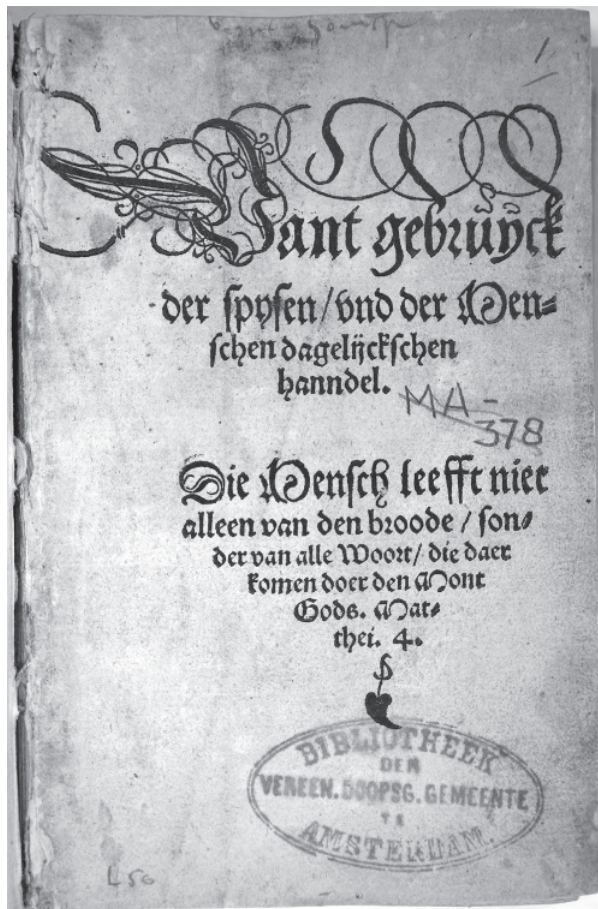 Vant gebrüyck
der spysen/vnd der Men⸗
schen dagelijckschen
hanndel.
MA-
378
Die Mensch leefft niet
alleen van den broode / son⸗
der van alle Woort/ die daer
komen doer den Mont
Gods. Mat⸗
thei. 4.
BIBLIOTHEEK
DER
VEREEN. DOOPSG. GEMEENTE
TE
AMSTERDAM.